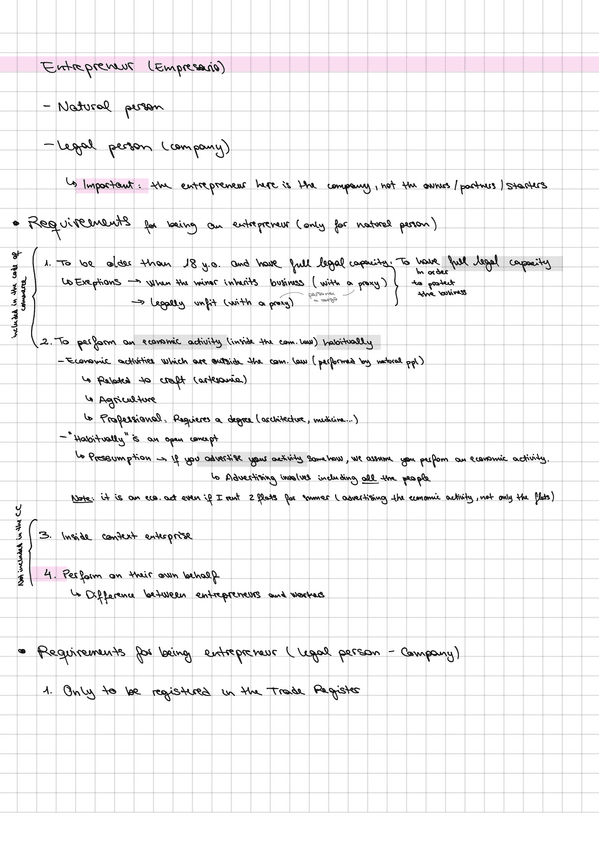 Entrepreneur (Empresario)
- Natural person
- Legal person (company)
↳ Important: the entrepreneur here is the company, not the owners/partners/starters
• Requirements for being an entrepreneur (only for natural person)
Included in the code of commerce
1. To be older than 18 y.o. and have full legal capacity. To have full legal capacity
↳ Exeptions → When the minor inherits business (with a proxy)
→ Legally unfit (with a proxy)
in order
to protect
the business
2. To perform an economic activity (inside the com. law) habitually
- Economic activities which are outside the com. law (performed by natural ppl)
↳ Related to craft (artesanía)
↳ Agriculture
↳ Professional. Requieres a degree (architecture, medicine...)
- "Habitually" is an open concept
↳ Presumption → If you advertise your activity somehow, we assume you perform an economic activity.
↳ Advertising involves including all the people
Note: it is an eco. act even if I rent 2 flats for summer (advertising the economic activity, not only the flats)
Not included in the CC
3. Inside context enterprise
4. Perform on their own behalf
↳ Difference between entrepreneurs and workers
• Requirements for being entrepreneur (legal person - Company)
1. Only to be registered in the Trade Register